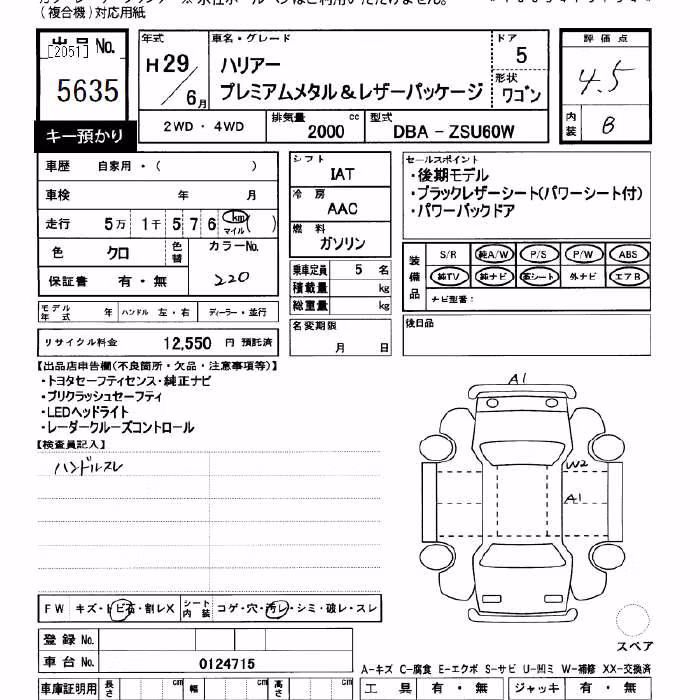 (複合機)対応用紙
出品 No.
[2051]
5635
キー預かり
年式
H29/6月
車名・グレード
ハリアー
プレミアムメタル＆レザーパッケージ
ドア
5
形状
ワゴン
評価点
4.5
内装
B
2WD・4WD
排気量
2000 cc
型式
DBA − ZSU60W
車歴 自家用・( )
車検 年 月
走行 5万 1千 5 7 6 km マイル ( )
色 クロ
色替
カラーNo.
220
保証書 有・無
モデル年式 年 ハンドル 左・右 ディーラー・並行
リサイクル料金 12,550 円 預託済
シフト
IAT
冷房
AAC
燃料
ガソリン
乗車定員 5 名
積載量 kg
総重量 kg
名変期限
月 日
セールスポイント
・後期モデル
・ブラックレザーシート(パワーシート付)
・パワーバックドア
装備品
S/R 純A/W P/S P/W ABS
純TV 純ナビ 革シート 外ナビ エアB
ナビ型番:
後日品
【出品店申告欄(不良箇所・欠品・注意事項等)】
・トヨタセーフティセンス・純正ナビ
・プリクラッシュセーフティ
・LEDヘッドライト
・レーダークルーズコントロール
【検査員記入】
ハンドルスレ
A1
W2
A1
スペア
FW キズ・トビ石・割レX
シート内装 コゲ・穴・汚レ・シミ・破レ・スレ
登録 No.
車台 No. 0124715
A−キズ C−腐食 E−エクボ S−サビ U−凹ミ W−補修 XX−交換済
車庫証明用 長さ cm 幅 cm 高さ cm
工具 有・無 ジャッキ 有・無